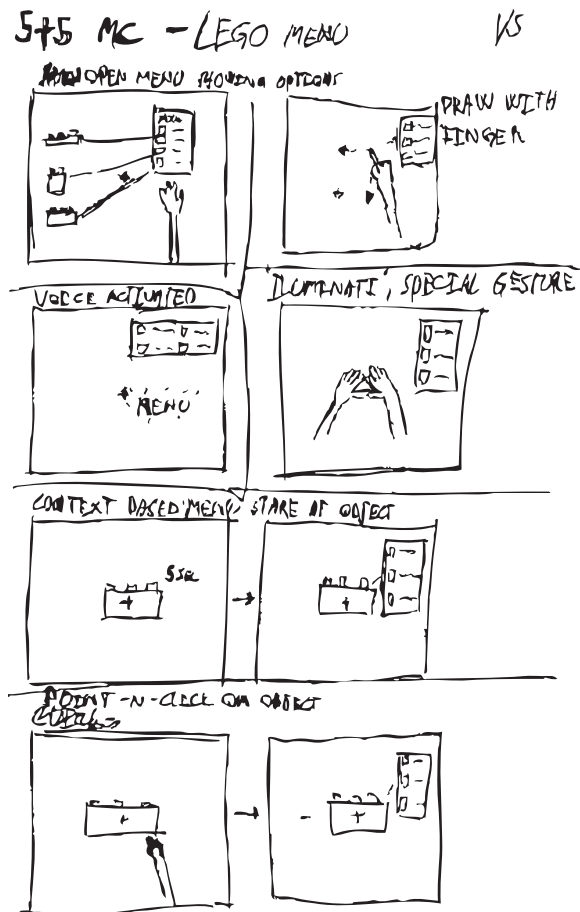 5+5 MC - LEGO MENU
VS
OPEN MENU SHOWING OPTIONS
MENU
DRAW WITH
FINGER
VOICE ACTIVATED
ILUMINATI, SPECIAL GESTURE
MENU
CONTEXT BASED MENU, STARE AT OBJECT
5 SEC
POINT-N-CLICK ON OBJECT